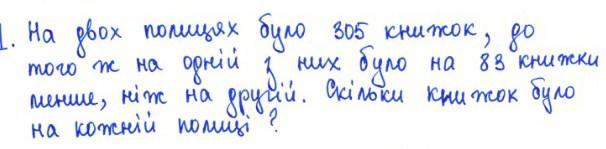 1. На двох полицях було 305 книжок, до
того ж на одній з них було на 83 книжки
менше, ніж на другій. Скільки книжок було
на кожній полиці?